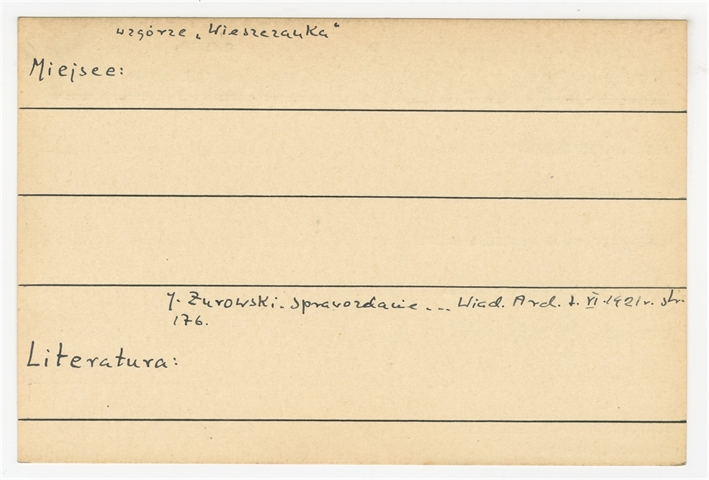 wzgórze „Wieszczanka"
Miejsce:
J. Żurowski - Sprawozdanie ... Wiad. Arch. t. VI. 1921 r. str.
176.
Literatura: